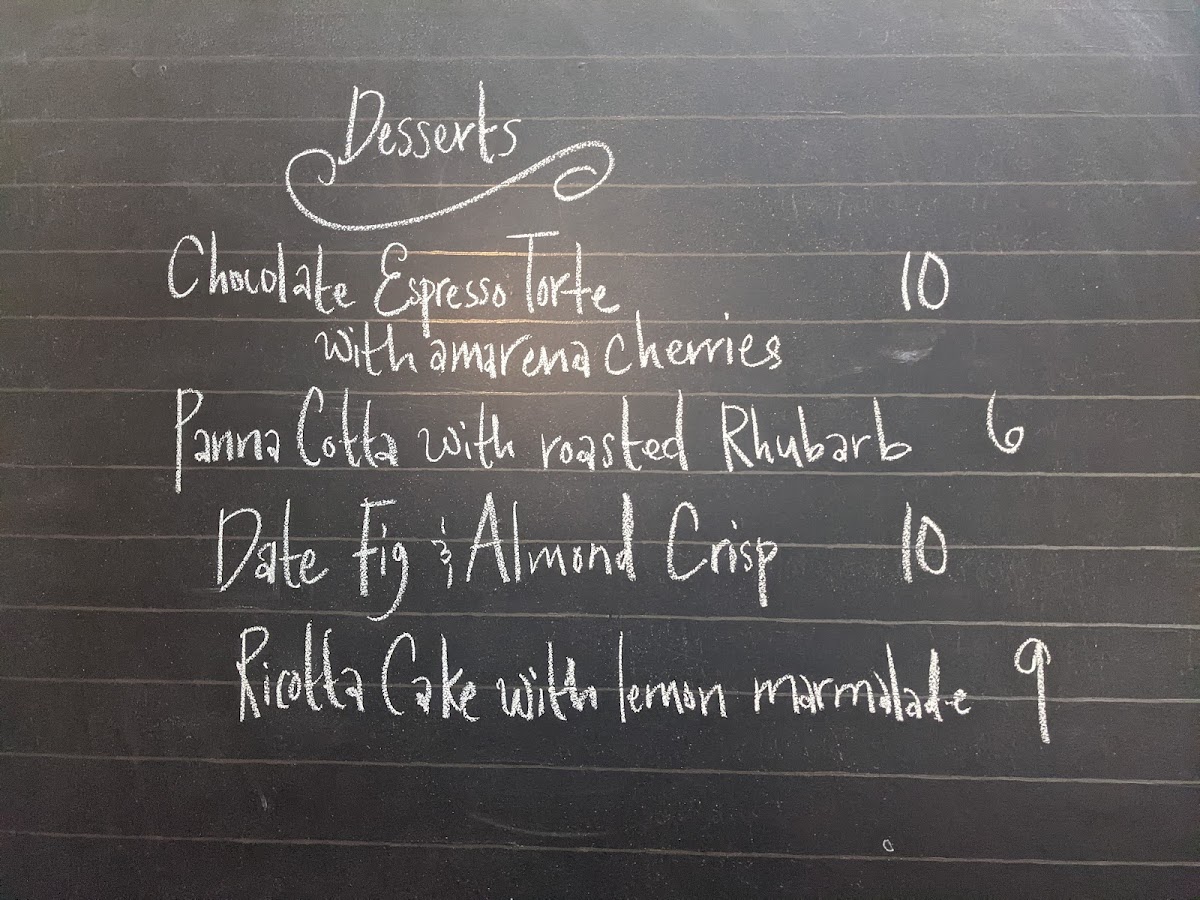 Desserts
Chocolate Espresso Torte 10
with amarena cherries
Panna Cotta with roasted Rhubarb 6
Date Fig & Almond Crisp 10
Ricotta Cake with lemon marmalade 9